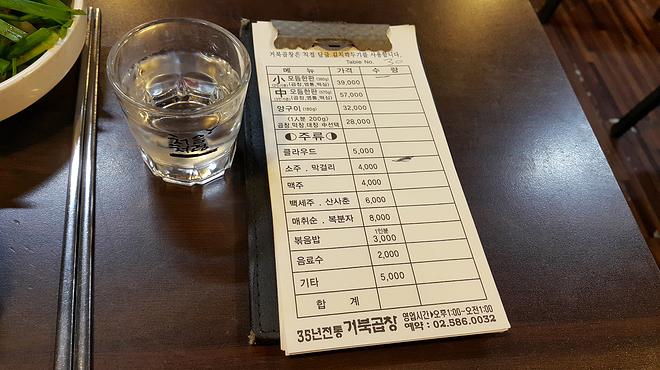 거북곱창은 직접 담금 김치깍두기를 사용합니다.
Table No. 30
메 뉴 가 격 수 량
小 모듬한판 (380g) 39,000
(곱창,염통,떡심)
中 모듬한판 (570g) 57,000
(곱창,염통,떡심)
양구이 (180g) 32,000
(1人분 200g) 28,000
곱창,막창,대창 中선택
주류
클라우드 5,000
소주 . 막걸리 4,000
맥주 4,000
백세주 . 산사춘 6,000
매취순 . 복분자 8,000
볶음밥 1인분 3,000
음료수 2,000
기타 5,000
합 계
35년전통 거북곱창 영업시간 오후1:00-오전1:00
예약 : 02.586.0032